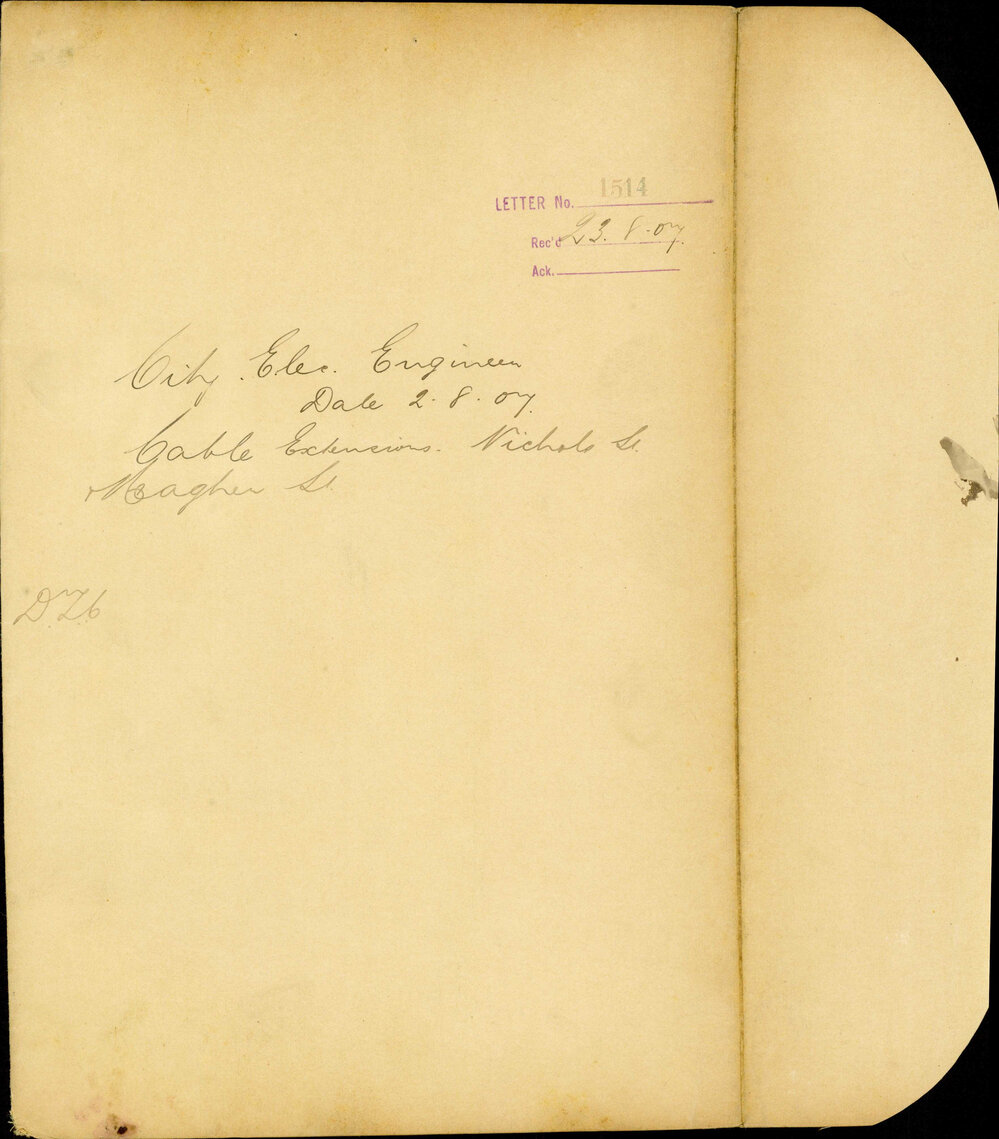 LETTER No. 1514
Rec'd 23.8.07.
Ack.
City Elec. Engineer
Date 2.8.07.
Cable Extensions. Nichols St.
Meagher St.